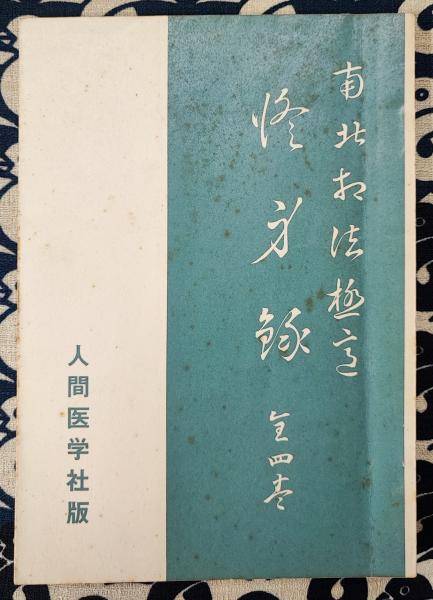 南北相法極意
修身録 全四巻
人間医学社版